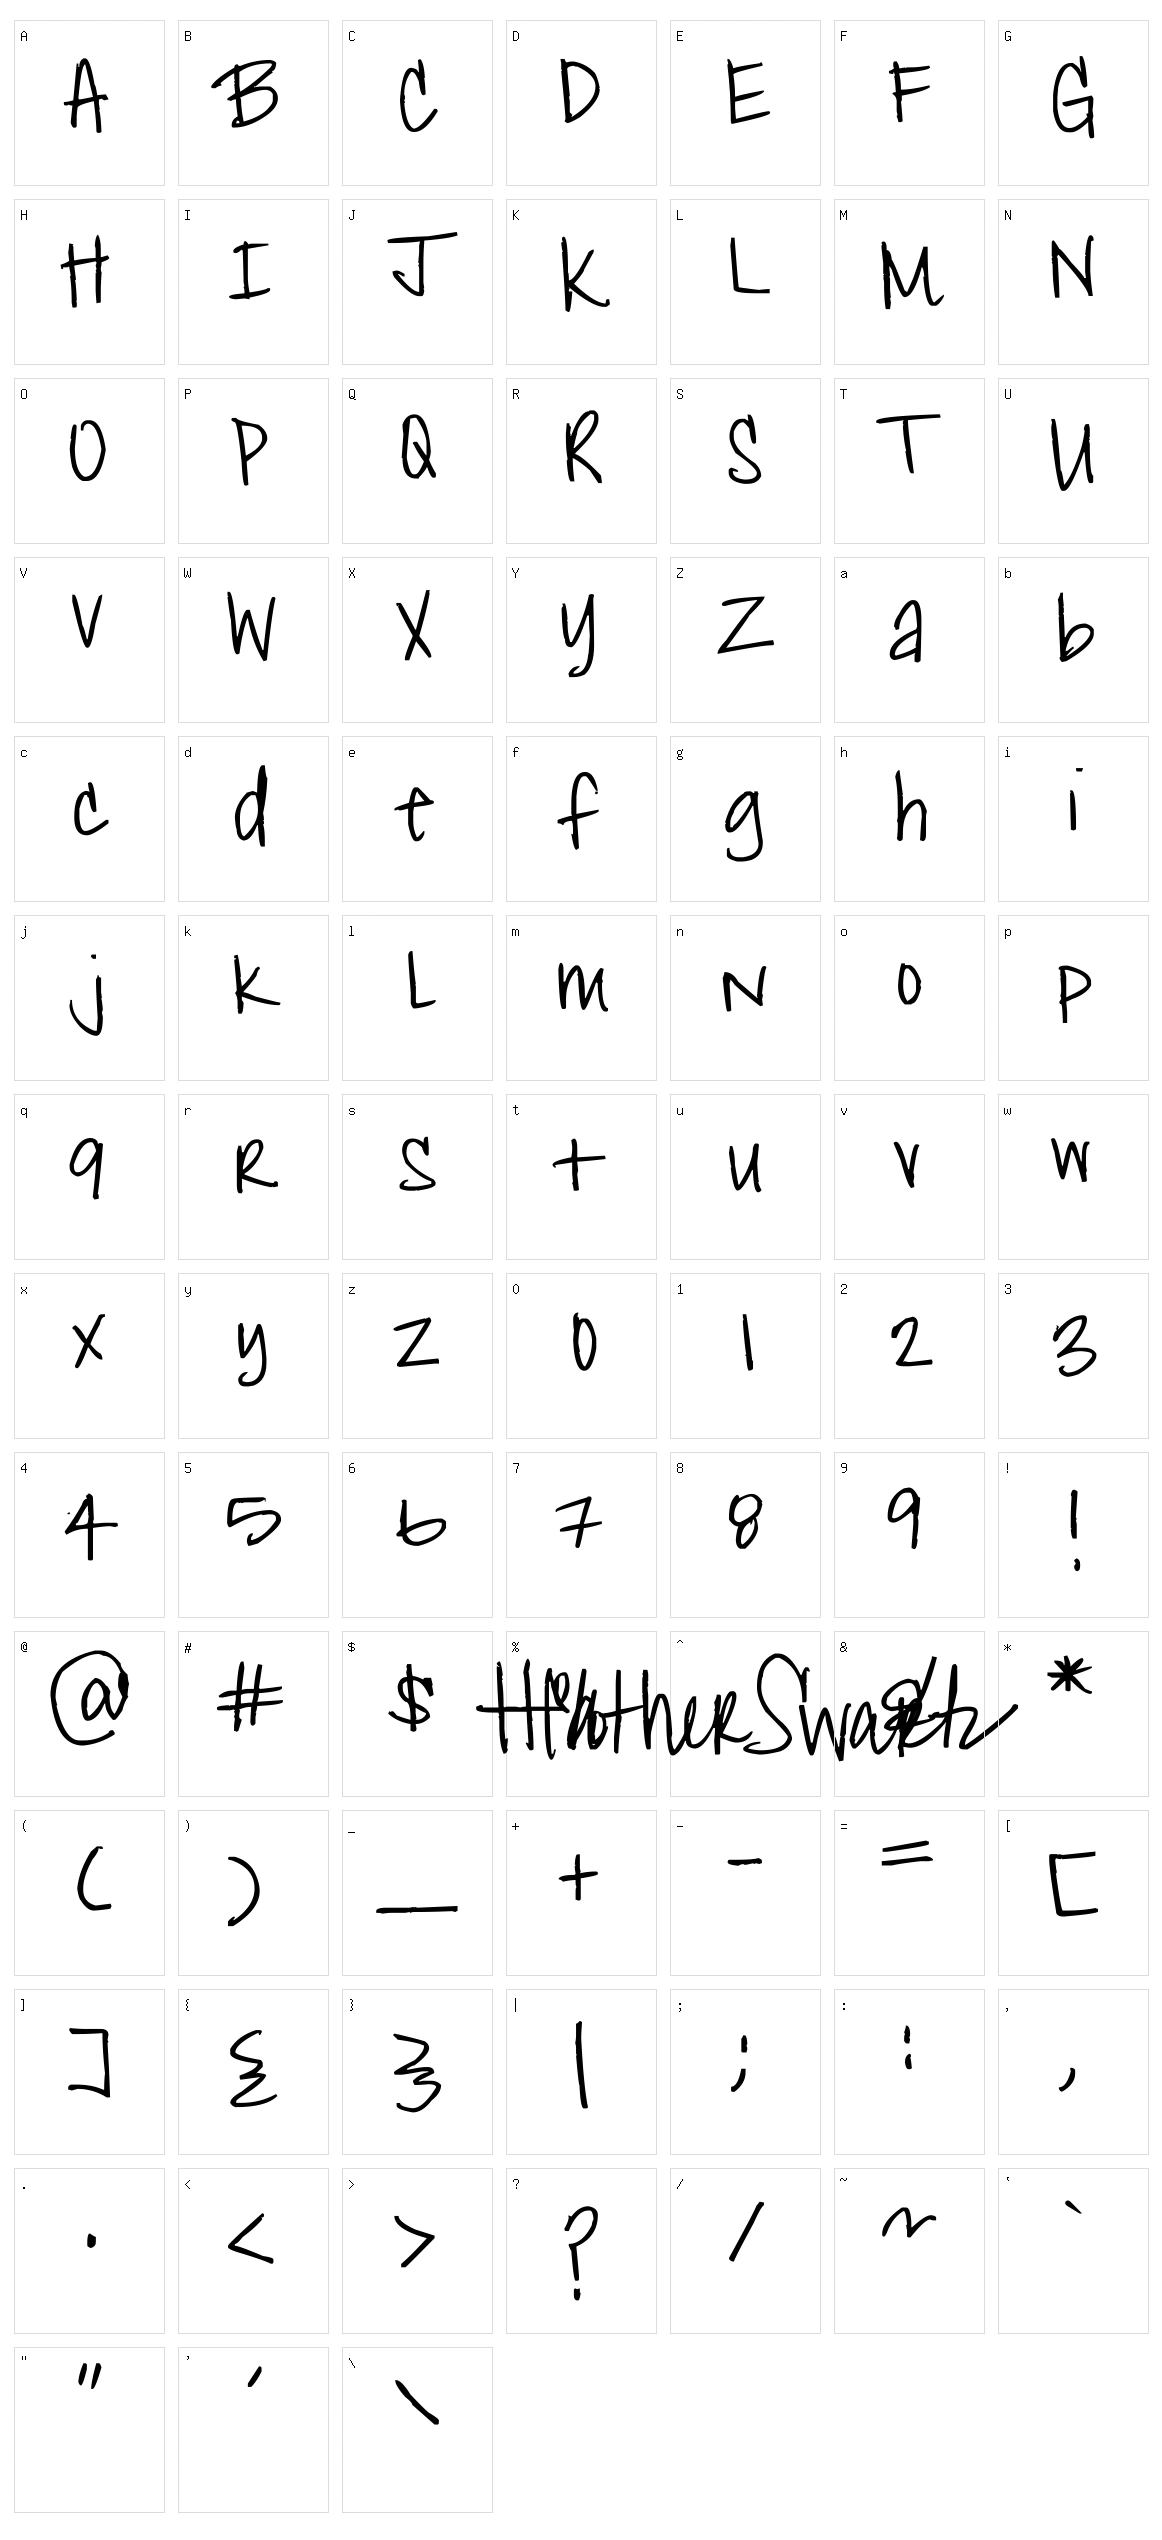 A B C D E F G
A B C D E F G
H I J K L M N
H I J K L M N
O P Q R S T U
O P Q R S T U
V W X Y Z a b
V W X Y Z a b
c d e f g h i
c d e f g h i
j k l m n o p
j k L m N o p
q r s t u v w
q R s t u v w
x y z 0 1 2 3
x y z 0 1 2 3
4 5 6 7 8 9 !
4 5 6 7 8 9 !
@ # $ % ^ & *
@ # $ % Heather Swartz & *
( ) _ + - = [
( ) _ + - = [
] { } | ; : ,
] { } | ; : ,
. < > ? / ~ `
. < > ? / ~ `
" ' \
" ' \